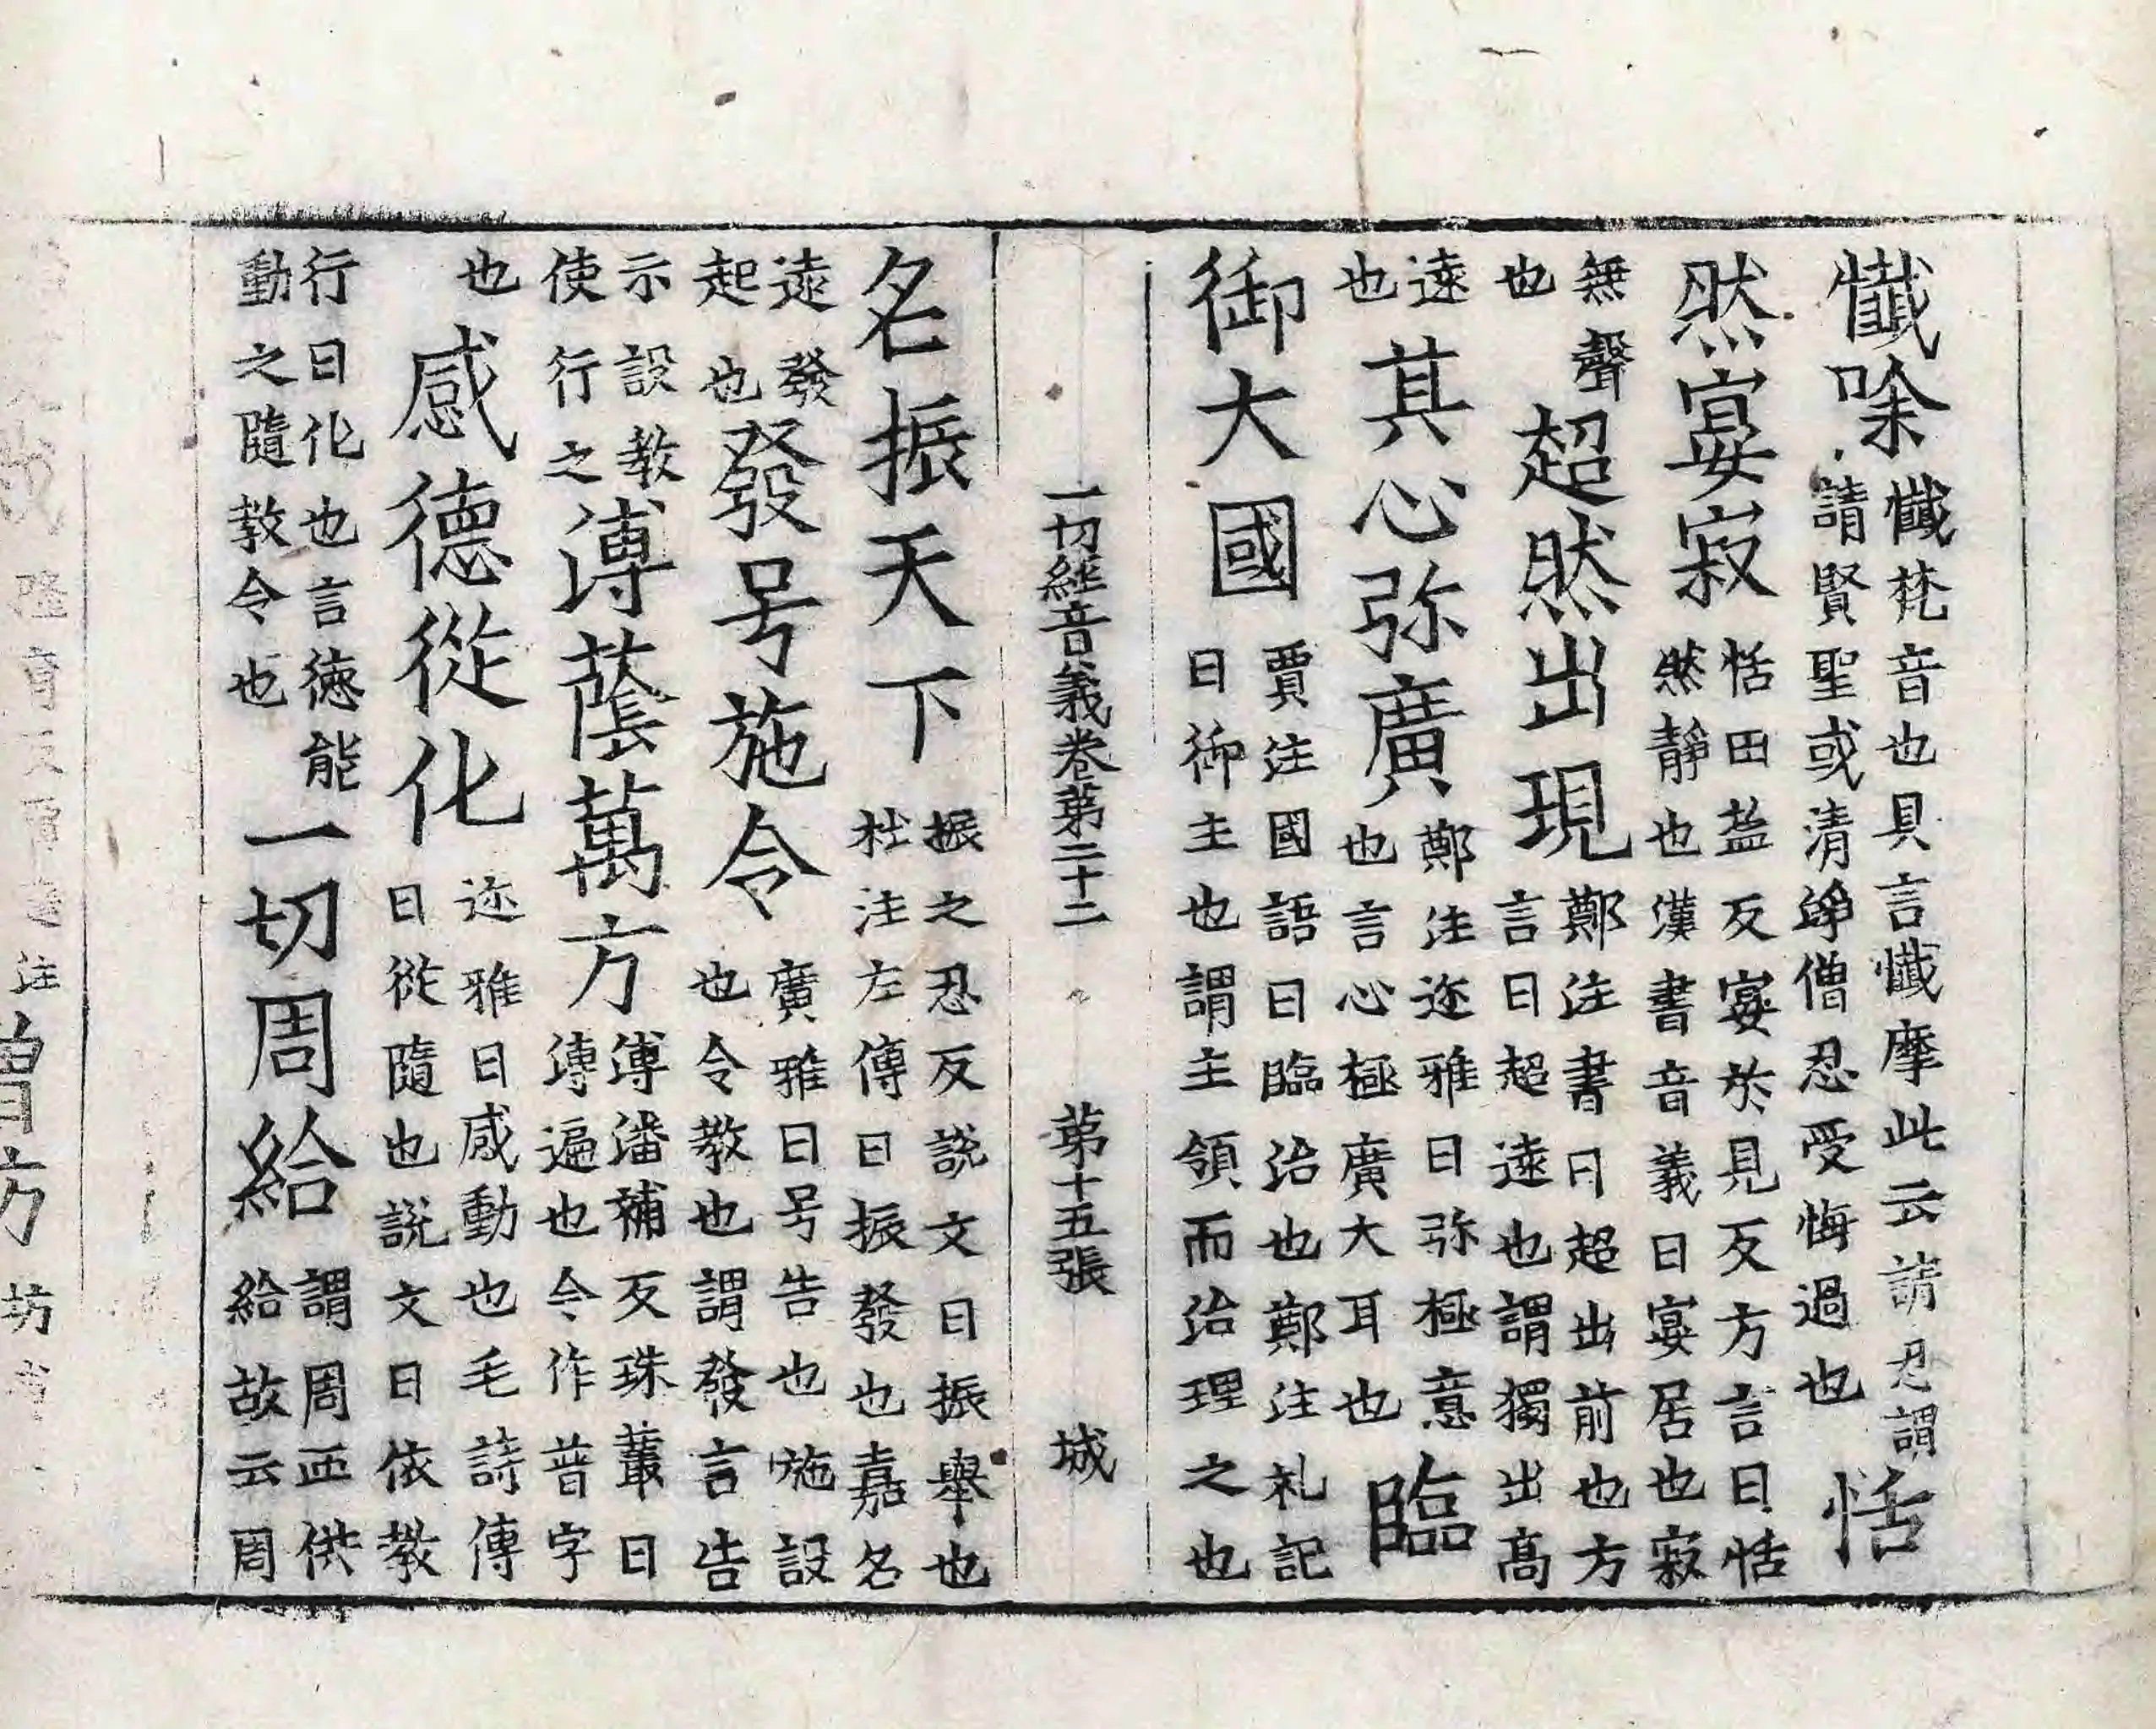 懺㖡懺梵音也具言懺摩此云請忍謂請賢聖或清竫僧忍受悔過也恬
然宴寂恬田盐反宴於見反方言曰恬然靜也漢書音義曰宴居也寂
無聲也超然出現鄭注書曰超出前也方言曰超遠也謂獨出高
遠也其心弥廣鄭注迩雅曰弥極意也言心極廣大耳也臨
御大國賈注國語曰臨治也鄭注礼記曰御主也謂主領而治理之也
一切經音義卷第二十二 第十五張 城
名振天下振之忍反說文曰振舉也杜注左傳曰振發也嘉名
遠發起也發号施令廣雅曰号告也施設也令教也謂發言告
示設教使行之溥蔭萬方溥潘補反珠叢曰溥遍也今作普字
也感德從化迩雅曰感動也毛詩傳曰從隨也說文曰依教
行曰化也言德能動之隨教令也一切周給謂周帀供給故云周